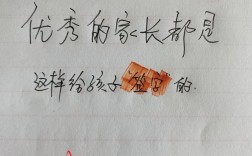 优秀的家长都是
这样给孩子"签字"的.